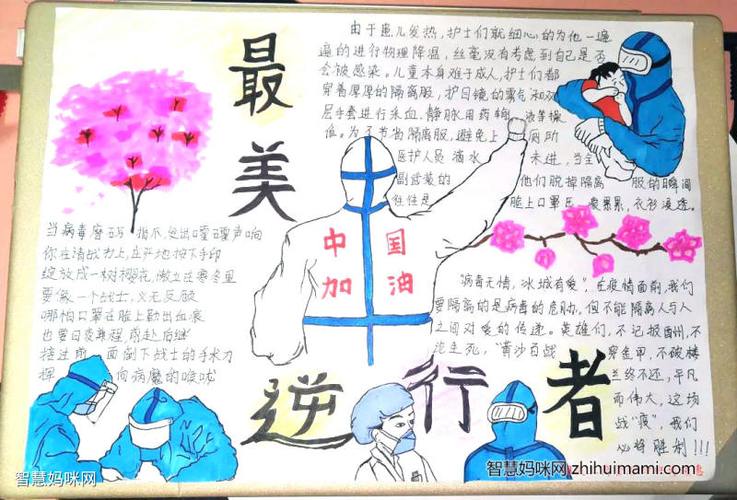 最美
逆行者
由于患儿发热，护士们就细心的为他一遍
遍的进行物理降温，丝毫没有考虑到自己是否
会被感染。儿童本身难于成人，护士们都
穿着厚厚的隔离服，护目镜的雾气和双
层手套进行采血，静脉用药
等操
作。为了节省隔离服，避免上
厕所
医护人员滴水
未进，当全
副武装的
他们脱掉隔离
服的瞬间
往往是
脸上口罩压
衣衫浸透。
中国
加油
当病毒
发出
声响
你在请战书上，庄严地按下手印
绽放成一树樱花，傲立在寒冬里
要做一个战士，义无反顾
哪怕口罩在脸上勒出血痕
也要日夜兼程，前赴后继
接过前一面倒下战士的手术刀
挥
向病魔的咙咙
"病毒无情，冰城有爱"，在疫情面前，我们
要隔离的是病毒的危胁，但不能隔离人与人
之间对爱的传递。英雄们，不记报酬，不
论生死，"黄沙百战
穿金甲，不破楼
兰终不还，平凡
而伟大，这场
战"疫"，我们
必将胜利!!!
智慧妈咪网
智慧妈咪网zhihuimami.com